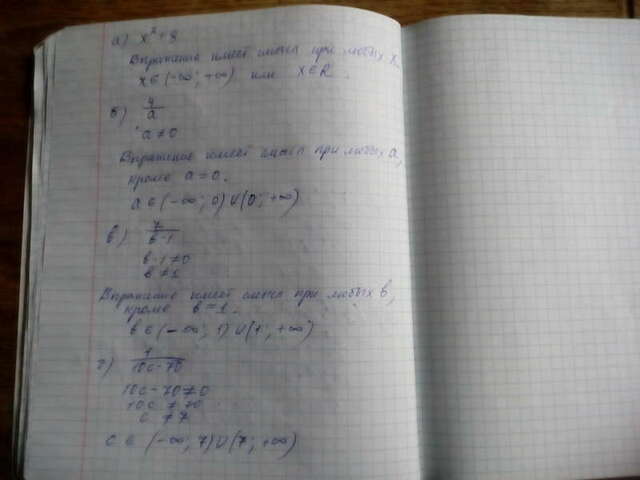 а) x² + 8
Выражение имеет смысл при любых x.
x ∈ (-∞; +∞) или x ∈ R.
б) 4/a
a ≠ 0
Выражение имеет смысл при любых a,
кроме a = 0.
a ∈ (-∞; 0) ∪ (0; +∞)
в) 7/(в-1)
в-1 ≠ 0
в ≠ 1
Выражение имеет смысл при любых в,
кроме в = 1.
в ∈ (-∞; 1) ∪ (1; +∞)
г) 1/(10c-70)
10c - 70 ≠ 0
10c ≠ 70
c ≠ 7
c ∈ (-∞; 7) ∪ (7; +∞)